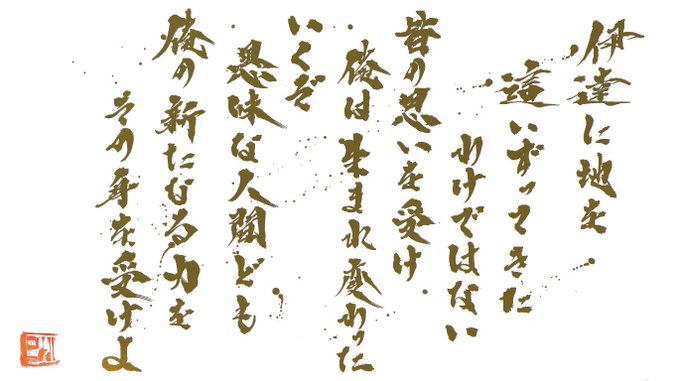 伊達に地を
這いずってきた
わけではない
皆の思いを受け
俺は生まれ変わった
いくぞ
愚昧な人間ども
俺の新たなる力を
その身を受けよ